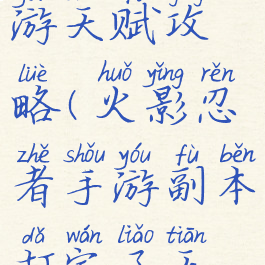 游天赋攻
lüè huǒ yǐng rěn
略(火影忍
zhě shǒu yóu fù běn
者手游副本
dǎ wán liǎo tiān
打完了天